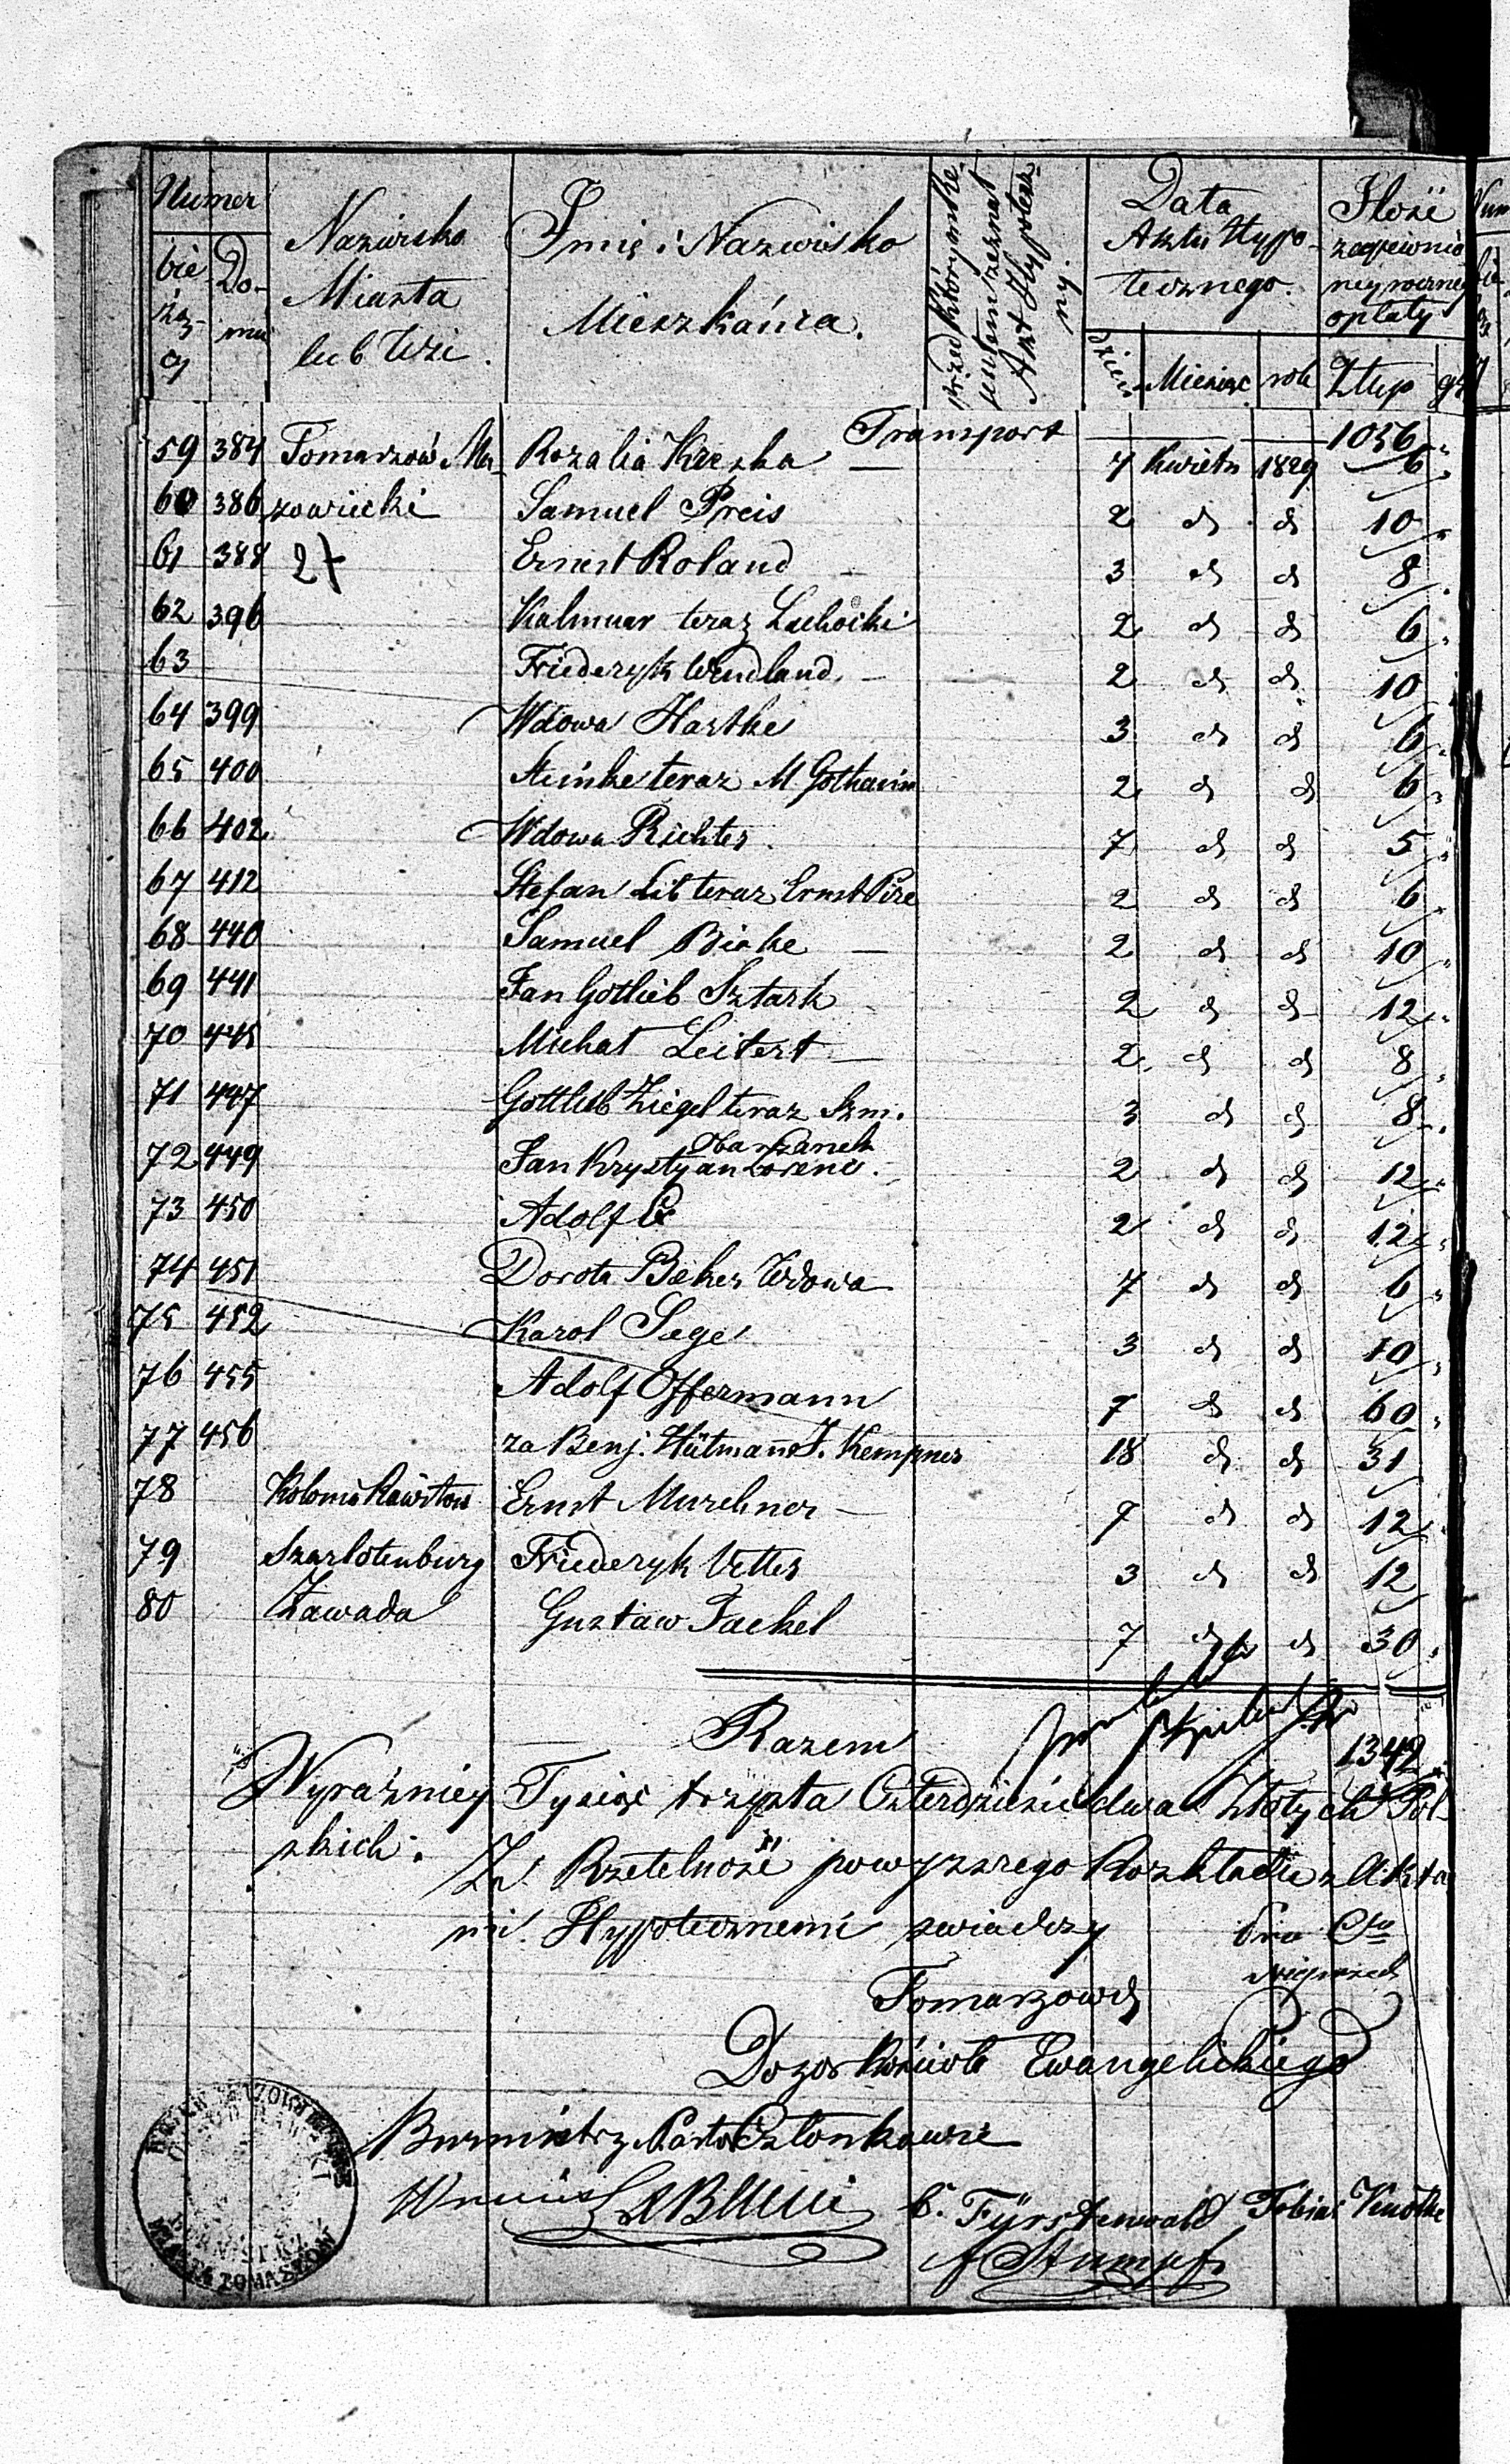 Numer
bieżący
Domu
Nazwisko Miasta lub Wsi.
Imię i Nazwisko Mieszkańca.
przed którym Rejentem zeznat Akt Hypoteczny.
Data Aktu Hypotecznego.
Dzień Miesiąc rok
Ilość zapewnioney roczney opłaty
Złup gr
Transport 1036
59 384 Tomaszów Ma Rozalia Kreska 7 Kwietn 1829 6
60 386 zowiecki Samuel Preis 2 d d 10
61 388 Ernest Roland 3 d d 8
62 396 Kalmuer teraz Lachocki 2 d d 6
63 Friederyk Wendland 2 d d 10
64 399 Wdowa Hartke 3 d d 6
65 400 Steinke teraz M Gothaim 2 d d 6
66 402 Wdowa Richter 7 d d 5
67 412 Stefan Lib teraz Ernst 2 d d 6
68 440 Samuel 2 d d 10
69 441 Jan Gotlieb Sztark 2 d d 12
70 445 Michał Leitert 2 d d 8
71 447 Gottlieb Ziegel teraz Szm. 3 d d 8
Obarzanek
72 449 Jan Krystyan Lorenc 2 d d 12
73 450 Adolf 2 d d 12
74 451 Dorota Beker Wdowa 7 d d 6
75 452 Karol Sege 3 d d 10
76 455 Adolf Offermann 7 d d 60
77 456 za Benj. Hütmann J. Kempner 18 d d 31
78 Ernst Murchner 7 d d 12
79 Szarlotenburg Friederyk Vetter 3 d d 12
80 Zawada Gustaw Jaekel 7 d d 30
Razem 1342
Wyraźniey Tysiąc trzysta Czterdzieści dwa Złotych Pol-
skich.
Za Rzetelność powyższego Rozkładu z Akta
mi Hypotecznemi świadczy
Tomaszow d
Dozor Kościoła Ewangelickiego
Burmistrz Członkowie
C. Fürstenwald Tobias Knothe
Stumpf